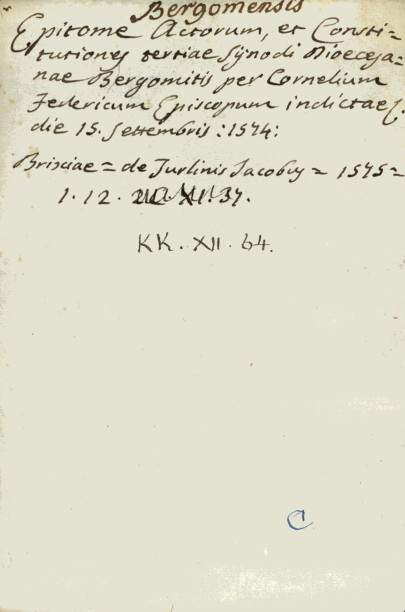 Bergomensis
Epitome Actorum, et Consti=
tutiones tertiae Synodi Dioecesa=
nae Bergomitis per Cornelium
Federicum Episcopum indictae
die 15. Settembris : 1574 :
Brixiae = de Turlinis Jacobus = 1575 =
1. 12. XI. 37.
KK. XII. 64.
C